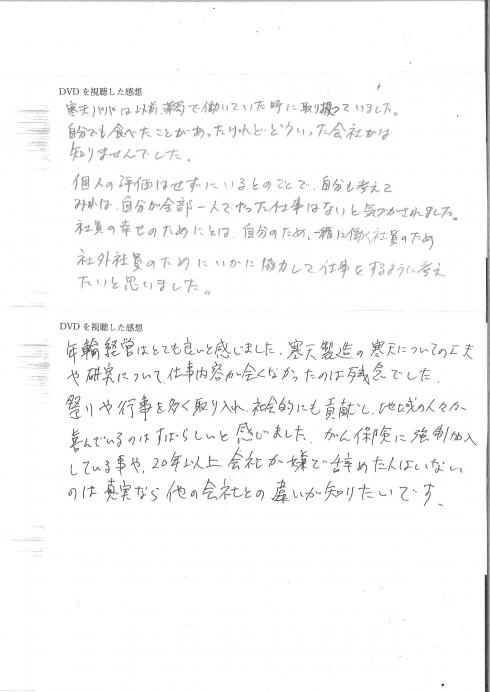 DVDを視聴した感想
寒天パパは以前、薬局で働いていた時に取り扱っていました。
自分でも食べたことがあったけれどどういった会社かは
知りませんでした。
個人の評価はせずにいるとのことで、自分も考えて
みれば、自分が全部一人でやった仕事はないと気づかされました。
社員の幸せのためにとは、自分のため、一緒に働く社員のため
社外社員のためにいかに協力して仕事をするように考え
たいと思いました。
DVDを視聴した感想
年輪経営はとても良いと感じました。寒天製造の寒天についての工夫
や研究について、仕事内容が全くなかったのは残念でした。
祭りや行事を多く取り入れ、社会的にも貢献し、地域の人々が
喜んでいるのはすばらしいと感じました。がん保険に強制加入
している事や、20年以上会社が嫌で辞めた人はいない
のは真実なら他の会社との違いが知りたいです。